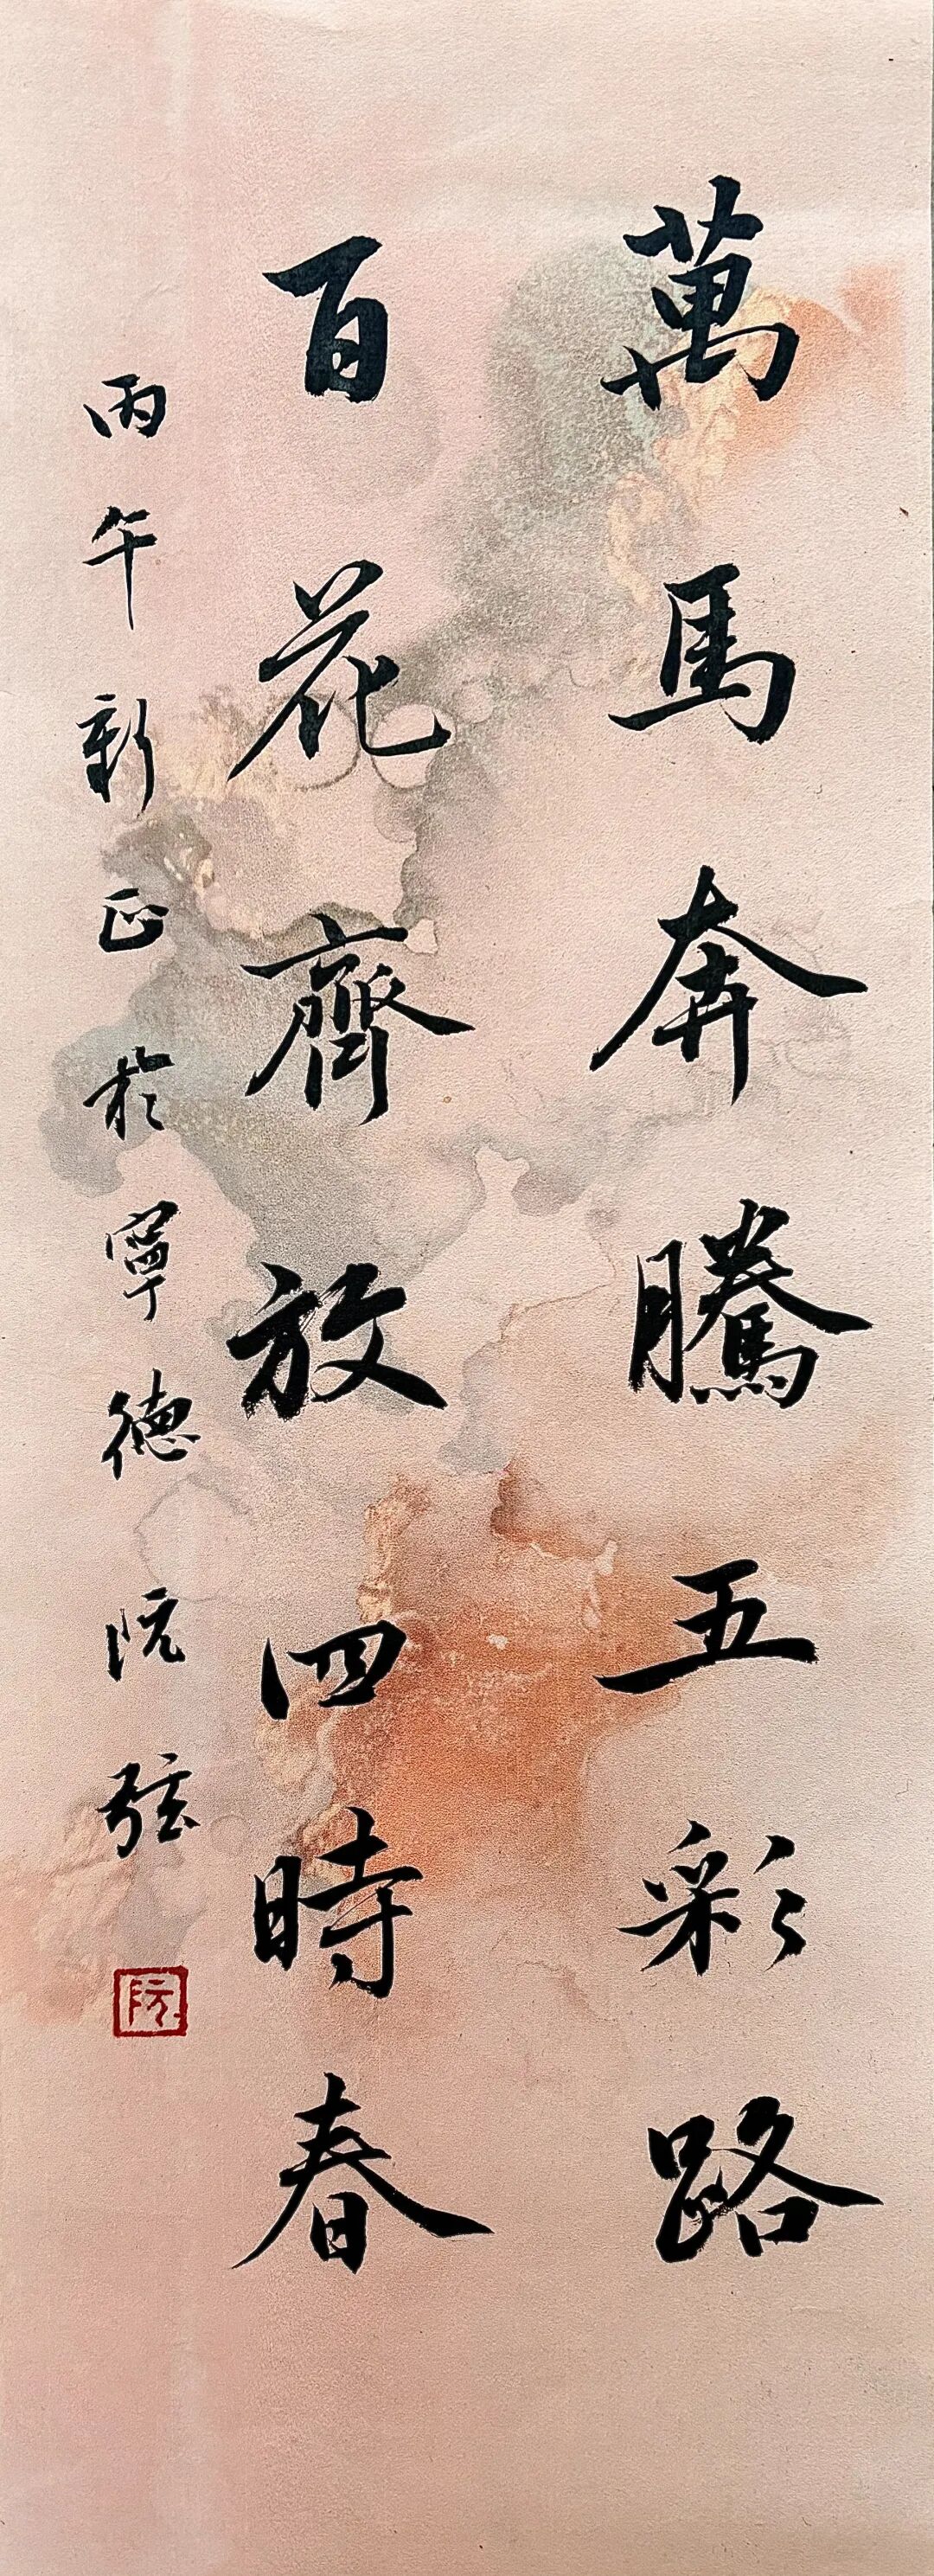 萬馬奔騰五彩路
百花齊放四時春
丙午新正於寧德阮弦
阮